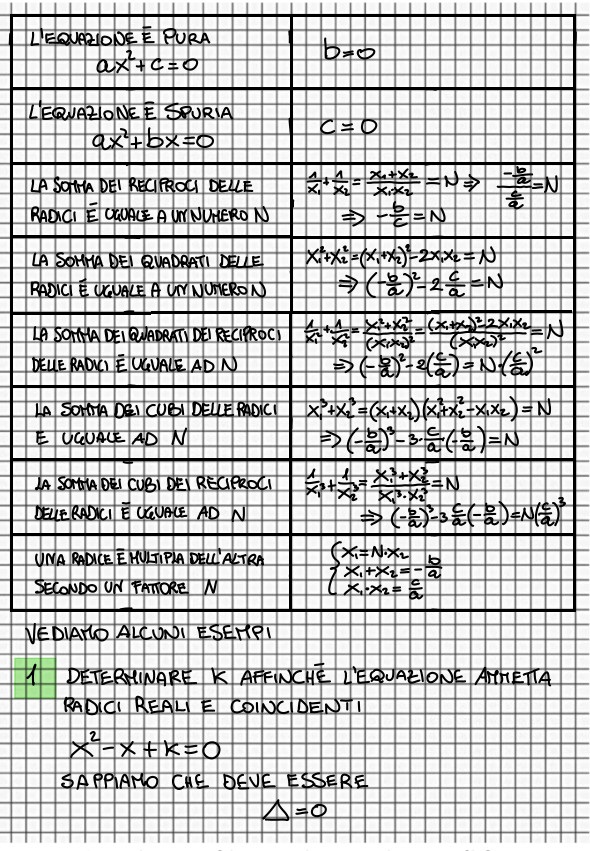 L'EQUAZIONE È PURA
ax²+c=0
b=0
L'EQUAZIONE È SPURIA
ax²+bx=0
c=0
LA SOMMA DEI RECIPROCI DELLE
RADICI È UGUALE A UN NUMERO N
1/x₁+1/x₂=(x₁+x₂)/(x₁x₂)=N ⇒ (-b/a)/(c/a)=N
⇒ -b/c=N
LA SOMMA DEI QUADRATI DELLE
RADICI È UGUALE A UN NUMERO N
x₁²+x₂²=(x₁+x₂)²-2x₁x₂=N
⇒ (-b/a)²-2c/a=N
LA SOMMA DEI QUADRATI DEI RECIPROCI
DELLE RADICI È UGUALE AD N
1/x₁²+1/x₂²=(x₁²+x₂²)/(x₁x₂)²=((x₁+x₂)²-2x₁x₂)/(x₁x₂)²=N
⇒ (-b/a)²-2(c/a)=N·(c/a)²
LA SOMMA DEI CUBI DELLE RADICI
E UGUALE AD N
x₁³+x₂³=(x₁+x₂)(x₁²+x₂²-x₁x₂)=N
⇒ (-b/a)³-3·c/a(-b/a)=N
LA SOMMA DEI CUBI DEI RECIPROCI
DELLE RADICI È UGUALE AD N
1/x₁³+1/x₂³=(x₁³+x₂³)/(x₁³·x₂³)=N
⇒ (-b/a)³-3c/a(-b/a)=N(c/a)³
UNA RADICE È MULTIPLA DELL'ALTRA
SECONDO UN FATTORE N
{x₁=N·x₂
x₁+x₂=-b/a
x₁·x₂=c/a
VEDIAMO ALCUNI ESEMPI
1 DETERMINARE K AFFINCHÈ L'EQUAZIONE AMMETTA
RADICI REALI E COINCIDENTI
x²-x+k=0
SAPPIAMO CHE DEVE ESSERE
△=0